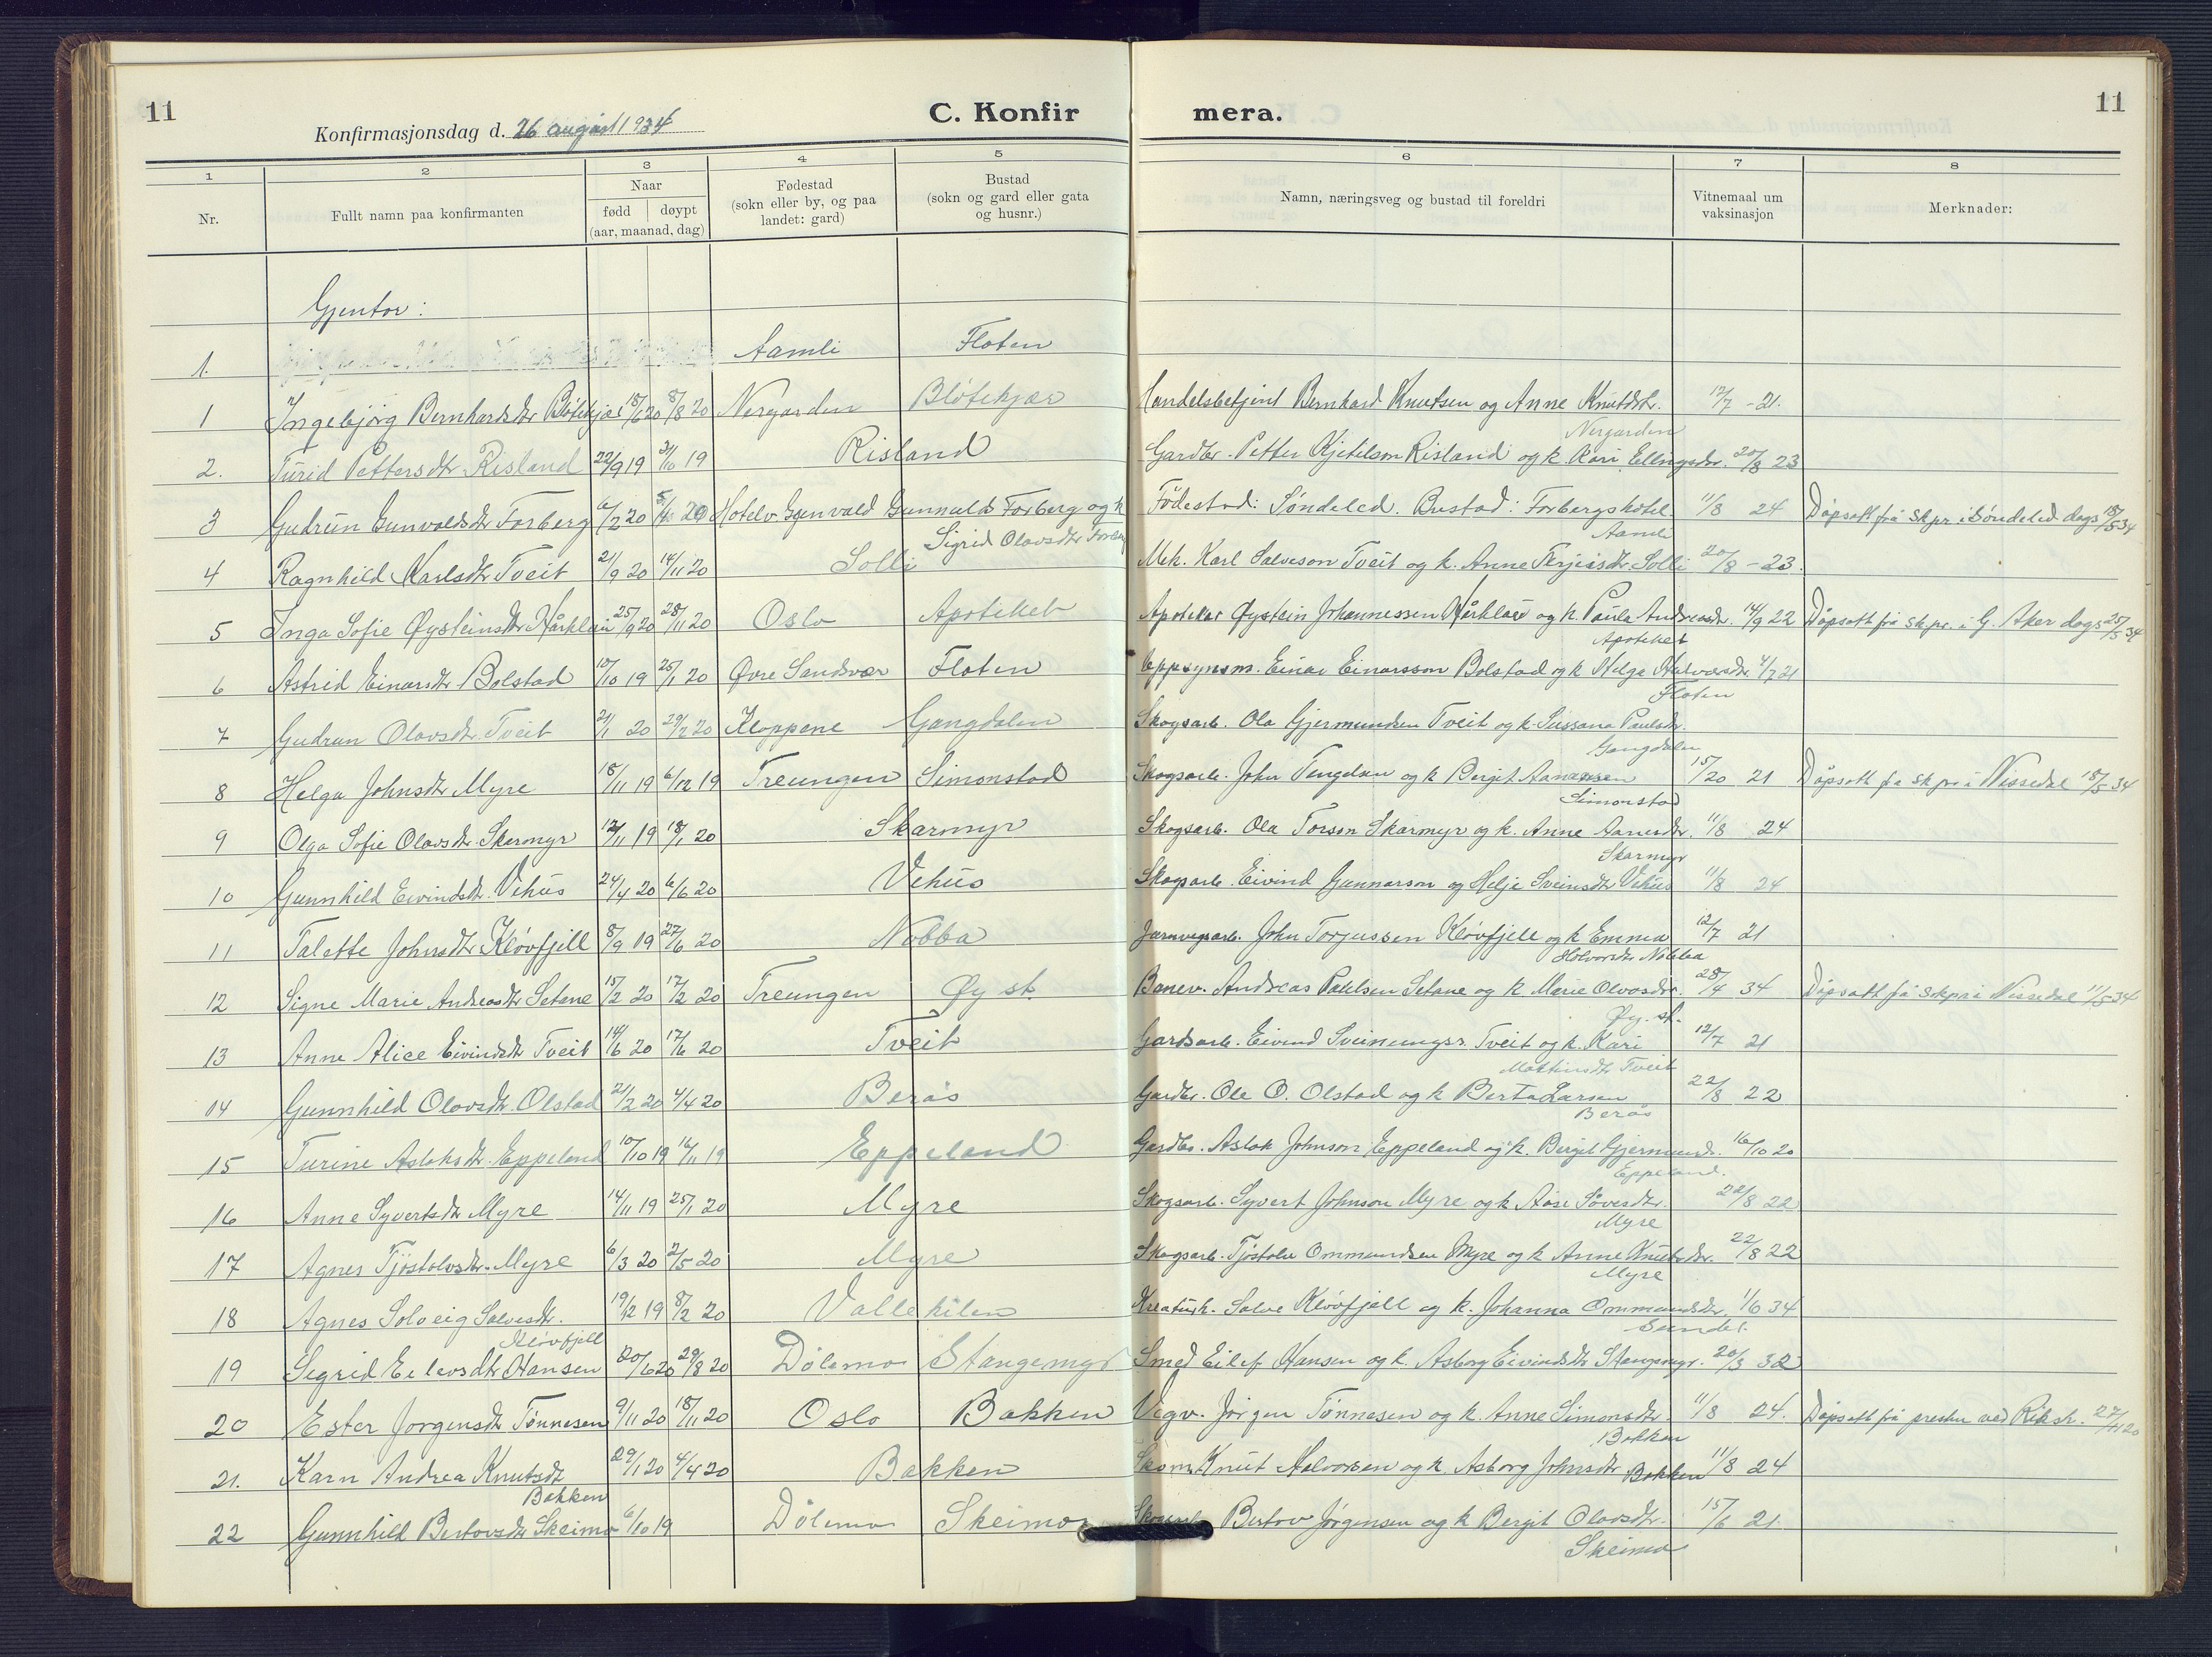 11
Konfirmasjonsdag d. 26 august 1934
C. Konfir mera.
11
1 2 3 4 5 6 7 8
Nr.
Fullt namn paa konfirmanten
Naar
fødd døypt
(aar, maanad, dag)
Fødestad
(sokn eller by, og paa
landet: gard)
Bustad
(sokn og gard eller gata
og husnr.)
Namn, næringsveg og bustad til foreldri
Vitnemaal um
vaksinasjon
Merknader:
Gjentor:
1. Aamli Floten
1 Ingebjörg Bernhardsdtr Blötekjær 18/6 20 8/8 20 Nergarden Blötekjær Handelsbetjent Bernhard Knutsen og Anne Knutsdtr. 12/7 - 21.
Nergarden
2. Turid Pettersdtr Risland 22/9 19 31/10 19 Risland Gardbr. Petter Kjetilson Risland og k. Kari Ellingsdr. 20/8 23
3 Gudrun Gunvaldsdtr Forberg 6/2 20 5/4 20 Hotelv Gunvald Gunnulds Forberg og k Födestad: Söndeled. Bustad: Forbergshotel 11/8 24 Döpsatt frå skpr. i Söndeled dags 18/5 34
Sigrid Olavsdtr Forberg Aamli
4 Ragnhild Karlsdtr Tveit 21/9 20 14/11 20 Solli Mek. Karl Salveson Tveit og k. Anne Terjesdtr Solli 20/8 - 23.
5 Inga Sofie Øysteinsdtr Hårklau 25/9 20 28/11 20 Oslo Apoteket Apoteker Øystein Johannessen Hårklau og k. Paula Andreasdr. 14/9 22 Döpsatt frå skpr. i G. Aker dags 25/5 34
Apoteket
6 Astrid Einarsdtr Bolstad 10/10 19 25/1 20 Øvre Sandsvær Floten Oppsynsm. Einar Einarsson Bolstad og k Helga Halvorsdtr. 4/7 21
Floten
7 Gudrun Olavsdtr. Tveit 21/1 20 29/2 20 Kloppene Gangdalen Skogsarb. Ola Gjermundsen Tveit og k. Sussana Paulsdtr.
Gangdalen
8 Helga Johnsdtr Myre 18/11 19 6/12 19 Treungen Simonstad Skogsarb. John Tengelsen og k Bergit Aanensen 15/20 21 Döpsatt frå skpr i Nissedal 18/5 34
Simonstad
9 Olga Sofie Olavsdtr. Skarmyr 12/11 19 18/1 20 Skarmyr Skogsarb. Ola Torson Skarmyr og k. Anne Aanesdtr. 11/8 24
Skarmyr
10 Gunnhild Eivindsdtr. Vehus 24/4 20 6/6 20 Vehus Skogsarb. Eivind Gunnarson og Helje Sveinsdtr Vehus 11/8 24
11 Talette Johnsdtr Klövfjell 8/9 19 27/6 20 Nobba Jarnvegsarb. John Torjussen Klövfjell og k Emma 12/7 21
Halvorsdtr Nobba
12 Signe Marie Andreasdtr Setane 15/2 20 17/2 20 Treungen Øy st. Banev. Andreas Paulsen Setane og k Marie Olvosdr. 28/4 34 Döpsatt frå sokpr i Nissedal 11/5 34
Øy. st.
13 Anne Alice Eivindsdtr Tveit 14/6 20 17/6 20 Tveit Gardsarb. Eivind Sveinungsr. Tveit og k. Kari 12/7 21
Mattinsdtr Tveit
14 Gunnhild Olovsdtr. Olstad 21/2 20 4/4 20 Berås Gardbr. Ole O. Olstad og k Berta Larsen 22/8 22
Berås
15 Turine Aslaksdtr. Eppeland 10/10 19 16/11 19 Eppeland Gardbr. Aslak Johnson Eppeland og k. Bergit Gjermunds. 16/10 20
Eppeland.
16 Anne Syvertsdtr Myre 14/11 19 25/1 20 Myre Skogsarb. Syvert Johnson Myre og k Aase Sövesdtr. 22/8 22
Myre
17 Agnes Tjöstolvsdtr. Myre 6/3 20 2/5 20 Myre Skogsarb. Tjöstolv Ommundsen Myre og k Anne Knutsdtr. 22/8 22
Myre
18 Agnes Solveig Salvesdtr. 19/12 19 8/2 20 Vallekilen Kreaturh. Salve Klövfjell og k. Johanna Ommundsdtr. 1/6 34
Klövfjell Sundet.
19 Sigrid Eilevsdtr Hansen 20/6 20 29/8 20 Dölemo Stangemyr Smed Eilef Hansen og k. Asborg Eivindsdtr Stangemyr. 20/3 32
20 Ester Jorgensdtr Tönnesen 9/11 20 18/11 20 Oslo Bakken Vegv. Jörgen Tönnesen og k. Anne Simonsdtr. 11/8 24. Döpsatt frå presten ved Riksh. 27/11 20
Bakken
21. Karn Andrea Knutsdtr 29/1 20 4/4 20 Bakken Skom. Knut Halvorsen og k. Asborg Johnsdtr Bakken 11/8 24
Bakken
22 Gunnhild Bertovsdtr Skeimo 6/10 19 Dölemo Skeimo Skogsarb Bertov Jörgensen og k Bergit Olavsdtr. 15/6 21.
Skeimo